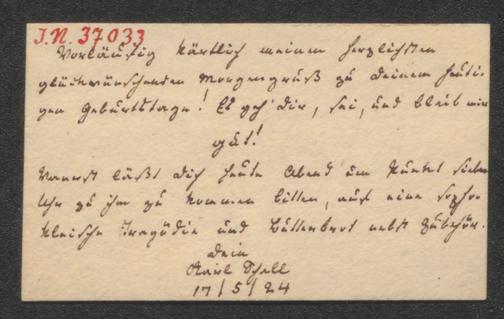 I.N. 37033
Vorläufig kärtlich meinem herzlichsten
glückwünschenden Morgengruß zu Deinem heuti-
gen Geburtstage! Es geh' Dir, sei, und bleib mir
gut!
läßt Dich heute Abend um Punkt sieben
Uhr zu ihm zu kommen bitten, auf eine sopho-
kleische Tragödie und Butterbrot nebst Zubehör.
Dein
Karl Schell
17/5/24